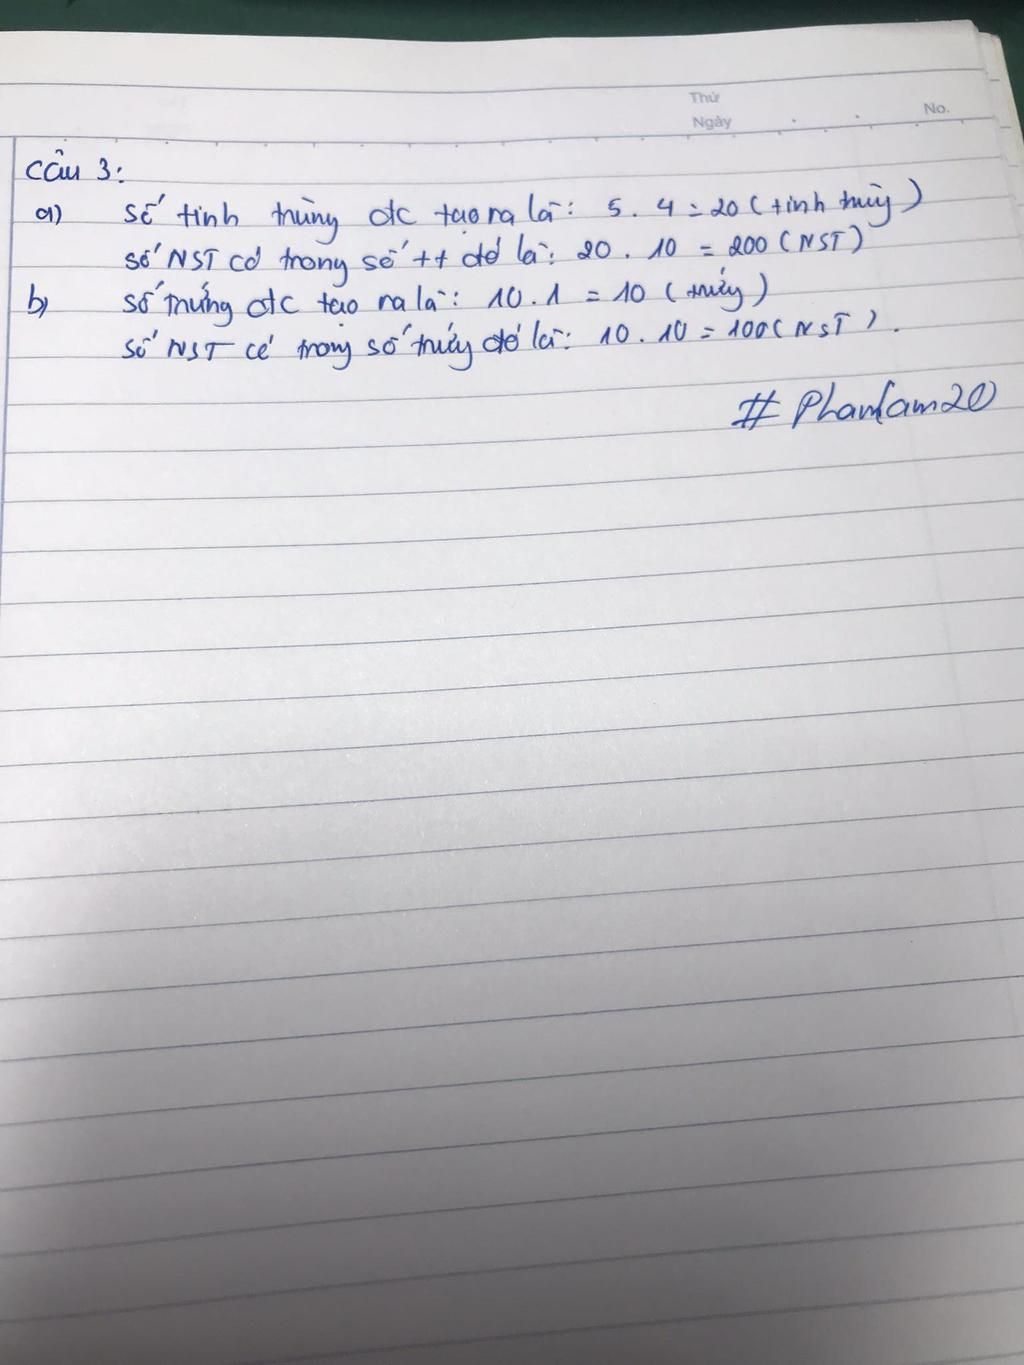 Thứ
Ngày
No.
Câu 3:
a) Số tinh trùng đc tạo ra là: 5.4=20 (tinh trùng)
số NST có trong số tt đó là: 20.10=200 (NST)
b) số trứng đc tạo ra là: 10.1=10 (trứng)
số NST có trong số trứng đó là: 10.10=100 (NST).
# Phamlam20